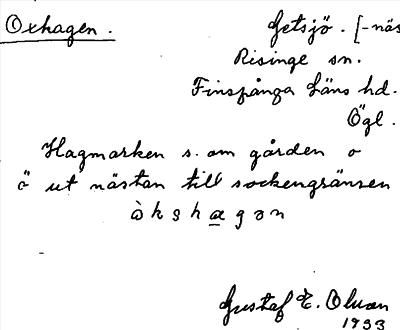 Oxhagen. Getsjö. [-näs
Risinge sn.
Finspånga läns hd.
Ögl.
Hagmarken s. om gården o
ö ut nästan till sockengränsen
òkshagən
Gustaf E. Olson
1933